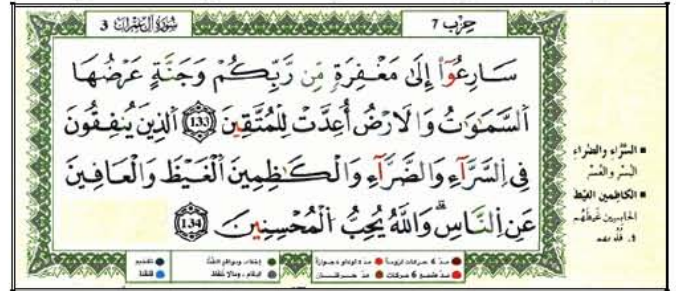 سُورَةُ آلِ عِمْرَان 3
حِزْب 7
سَارِعُوٓاْ إِلَىٰ مَغْفِرَةٍ مِّن رَّبِّكُمْ وَجَنَّةٍ عَرْضُهَا
اَ۬لسَّمَٰوَٰتُ وَالَارْضُ أُعِدَّتْ لِلْمُتَّقِينَ 133 اَ۬لذِينَ يُنفِقُونَ
فِے اِ۬لسَّرَّآءِ وَالضَّرَّآءِ وَالْكَٰظِمِينَ اَ۬لْغَيْظَ وَالْعَافِينَ
عَنِ اِ۬لنَّاسِۖ وَاللَّهُ يُحِبُّ اُ۬لْمُحْسِنِينَ 134
■ السَّرَّاء والضَّراء
اليُسْرِ والعُسْرِ
■ الكاظِمين الغيْظ
الحابِسِين غَيظَهُم
● مدّ 6 حركات لزوماً ● مدّ 2 أو 4 أو 6 جوازاً
● مدّ مشبع 6 حركات ● مدّ حركتان
● إخفاء، ومواقع الغُنَّة
● إدغام، وما لا يُلفَظ
● تفخيم
● قلقلة